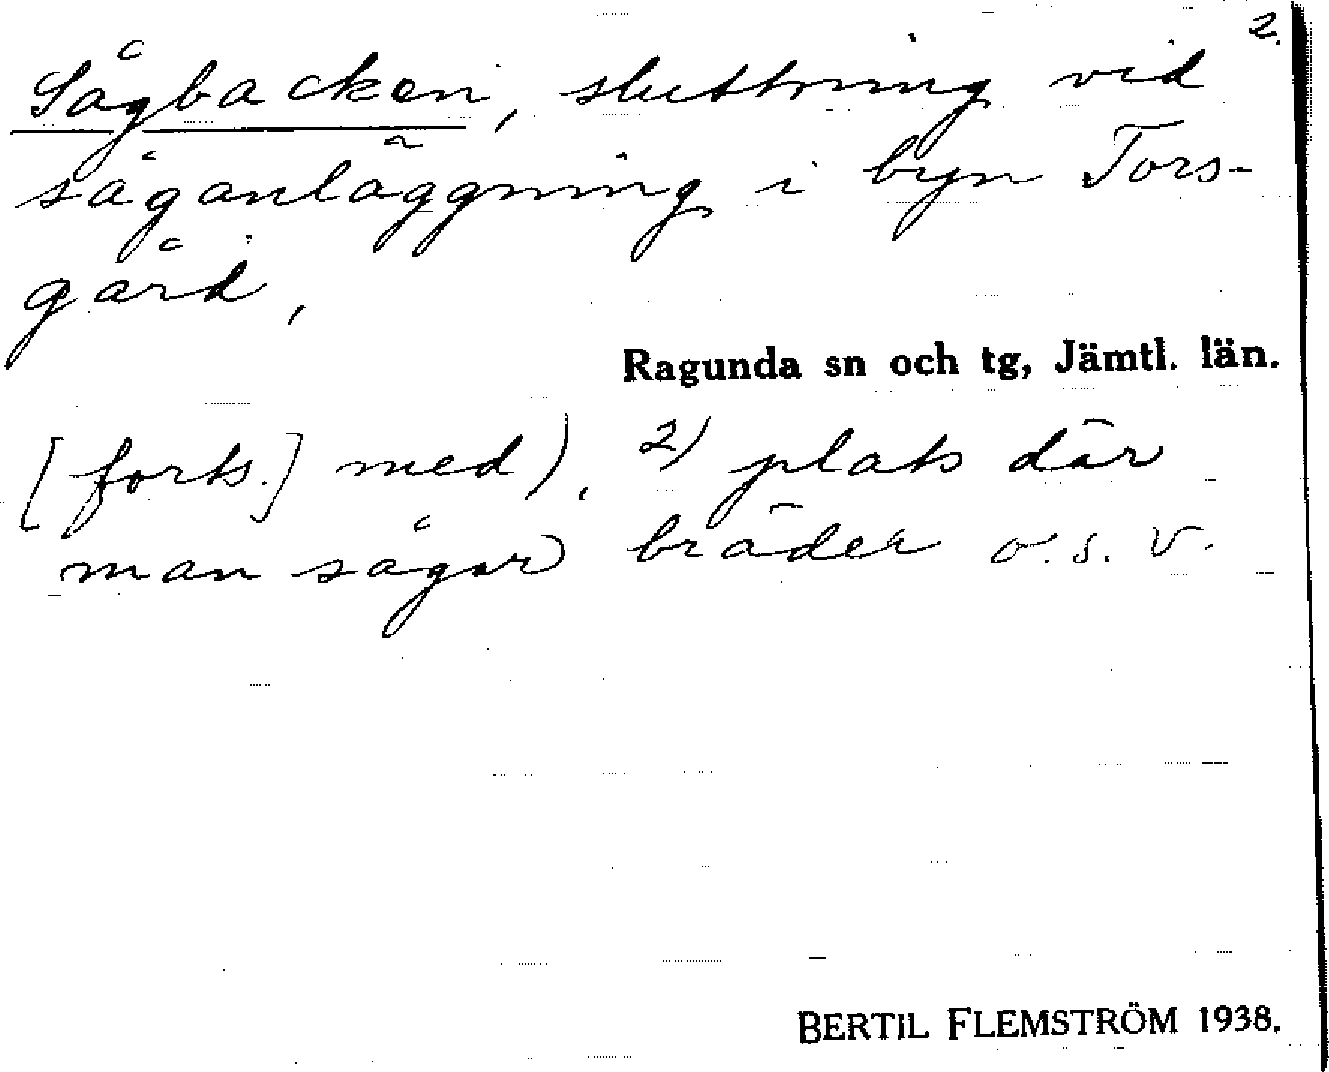 2.
Sågbacken, sluttning vid
såganläggning i byn Tors-
gård,
Ragunda sn och tg, Jämtl. län.
[forts.] med). 2) plats där
man sågar bräder o.s.v.
BERTIL FLEMSTRÖM 1938.